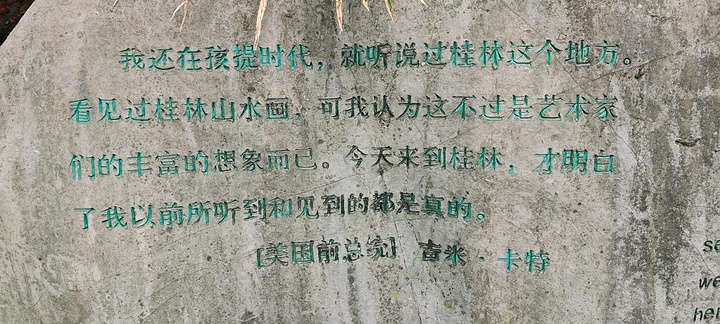 我还在孩提时代，就听说过桂林这个地方。
看见过桂林山水画，可我认为这不过是艺术家
们的丰富的想象而已。今天来到桂林，才明白
了我以前所听到和见到的都是真的。
[美国前总统] 吉米·卡特
se
we
her